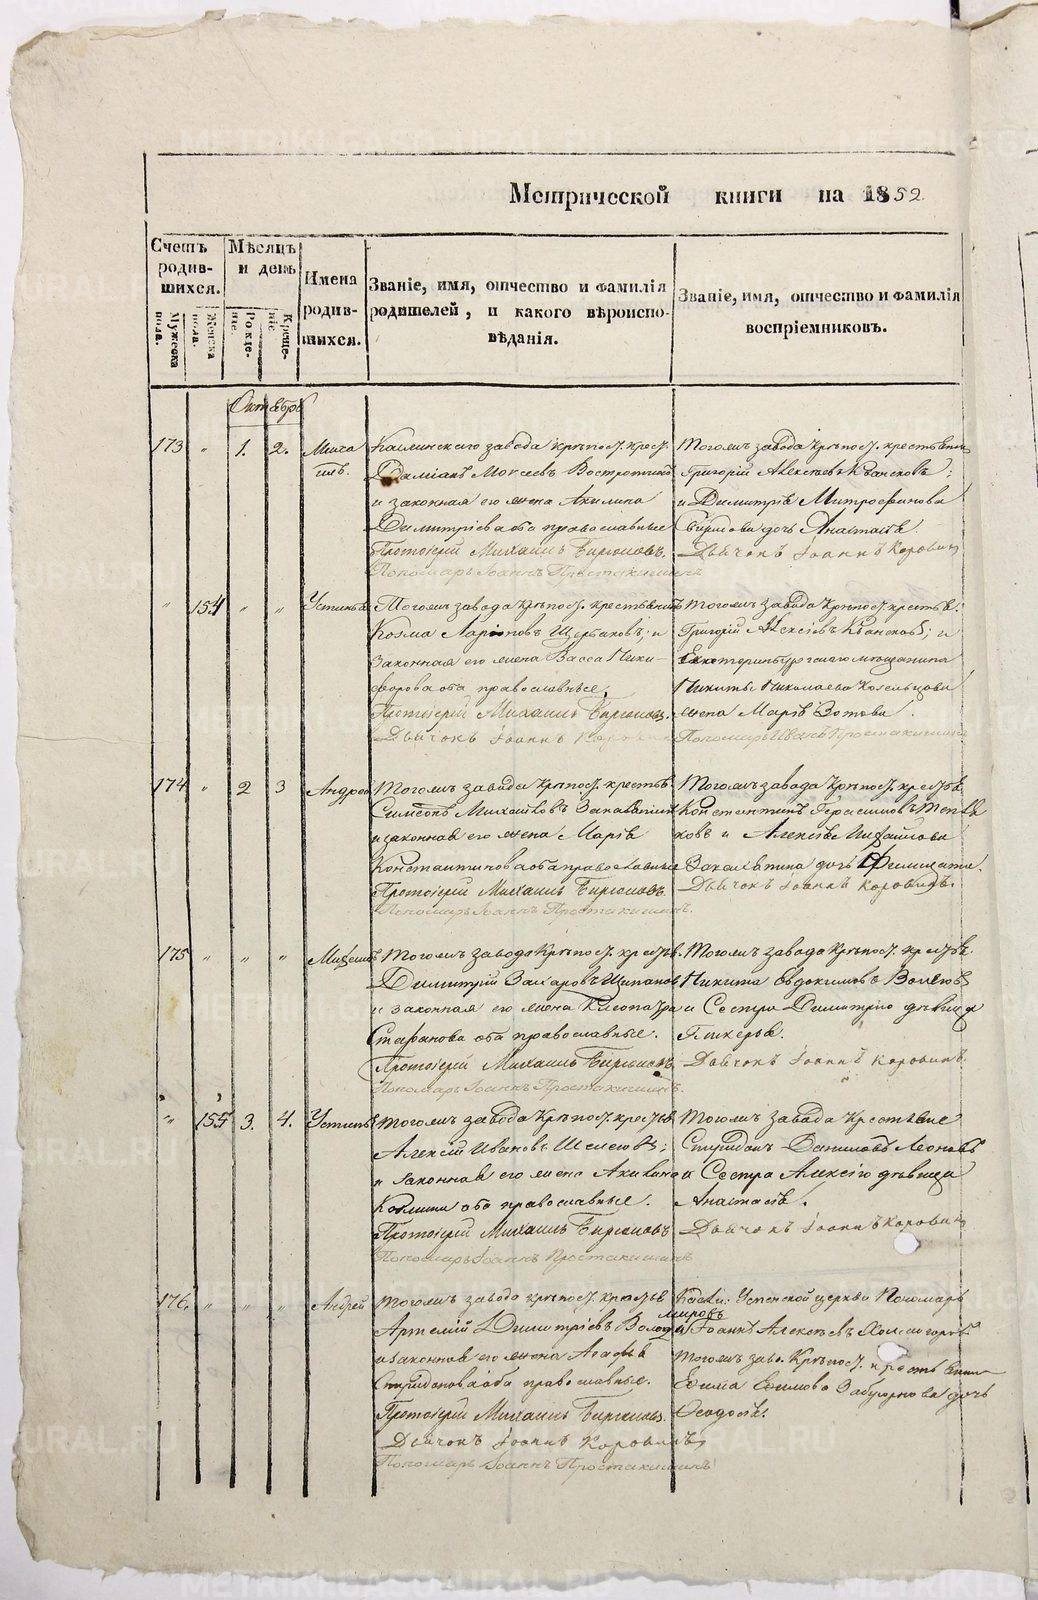 Метрической книги на 1852.
Счетъ родив-шихся.
Мужеска пола.
Женска пола.
Мѣсяцъ и день
Рожде-ніе.
Креще-ніе
Имена родив-шихся.
Званіе, имя, отчество и фамилія
родителей, и какого вѣроиспо-
вѣданія.
Званіе, имя, отчество и фамилія
воспріемниковъ.
Октябрь
173 " 1. 2.
Миха
илъ.
завода крѣпост. крест.
Даміанъ Моѵсеевъ
и законная его жена Акилина
Димитріева оба православные
Протоіерей Михаилъ Бирюковъ.
Пономарь Іоаннъ Простакишинъ
Тогожъ завода крѣпост. крестьянинъ
Григорій Алексѣевъ Квансковъ;
и Димитрія Митрофанова
дочь Анастасія.
Дьячокъ Іоаннъ Коровинъ
" 154 " "
Устинья
Тогожъ завода крѣпост. крестьянинъ
Козма Ларіоновъ Щербаковъ; и
законная его жена Васса Ники-
форова оба православные;
Протоіерей Михаилъ Бирюковъ.
Дьячокъ Іоаннъ Коровинъ
Тогожъ завода крѣпост. крестья.
Григорій Алексѣевъ Квансковъ; и
Екатеринбургскаго мѣщанина
Никиты Николаева
жена Марія Зотова.
Пономарь Иванъ Простакишинъ
174 " 2 3
Андрей
Тогожъ завода крѣпост. крестья
Симеонъ Михайловъ
и законная его жена Марія
Константинова оба православные
Протоіерей Михаилъ Бирюковъ.
Пономарь Іоаннъ Простакишинъ.
Тогожъ завода крѣпост. крестья.
Константинъ Герасимовъ Тепля
ковъ и Алексѣя Михайлова
дочь
Дьячокъ Іоаннъ Коровинъ.
175 " " "
Михаилъ
Тогожъ завода крѣпост. крестья.
Димитрій Захаровъ Щипановъ
и законная его жена Клеопатра
Стефанова оба православные.
Протоіерей Михаилъ Бирюковъ
Пономарь Іоаннъ Простакишинъ.
Тогожъ завода крѣпост. крестья.
Никита Евдокимовъ
и Сестра Димитрію дѣвица
Гликерья.
Дьячокъ Іоаннъ Коровинъ.
" 155 3. 4.
Устинья
Тогожъ завода крѣпост. крестья
Алексій Ивановъ
и законная его жена Акилина
Козмина оба православные.
Протоіерей Михаилъ Бирюковъ
Пономарь Іоаннъ Простакишинъ
Тогожъ завода Крестьяне
Спиридонъ Даниловъ Леоновъ
и Сестра Алексію дѣвица
Анастасія.
Дьячокъ Іоаннъ Коровинъ
176. " " "
Андрей
Тогожъ завода крѣпост. крестья
Артемій Димитріевъ Володи
мировъ
и законная его жена Агафья
Спиридонова оба православные.
Протоіерей Михаилъ Бирюковъ.
Дьячокъ Іоаннъ Коровинъ
Пономарь Іоаннъ Простакишинъ
Касли: Успенской церкви Пономарь
Іоаннъ Алексѣевъ Холмогоровъ
и Тогожъ заво. Крѣпост. крестьянина
Ефима Ефимова Забродина дочь
Ѳеодосія.